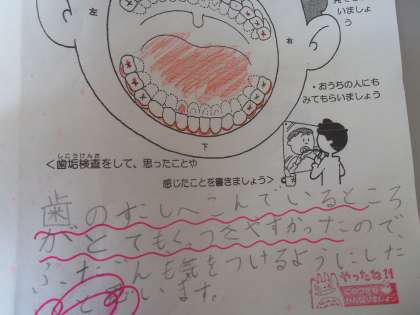 いましょ
う
左
右
・おうちの人にも
みてもらいましょう
下
しこうけんさ
<歯垢検査をして、思ったことや
感じたことを書きましょう>
歯のすこしへこんでいるところ
がとてもくっつきやすかったので、
ふだんも気をつけるようにした
と思います。
やったね!!